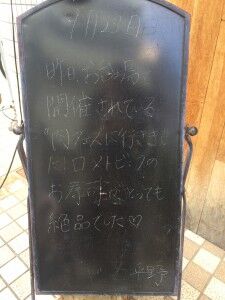 9月23日
昨日、お台場で
開催されている
肉フェスに行きました
トロ
お寿司がとっても
絶品でした♡
平野